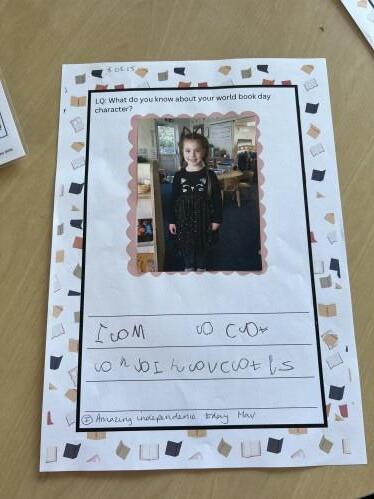 5.03.25
LQ: What do you know about your world book day
character?
I am a cat
and I have cat
I Amazing independence today